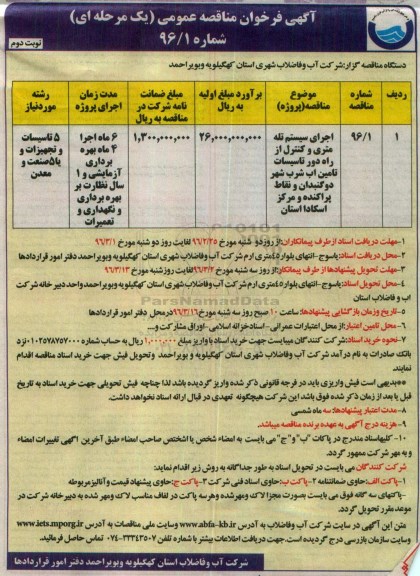 آگهی فرخوان مناقصه عمومی (یک مرحله ای)
شماره ۹۶/۱
نوبت دوم
دستگاه مناقصه گزار:شرکت آب وفاضلاب شهری استان کهگیلویه وبویراحمد
ردیف
شماره مناقصه
موضوع مناقصه(پروژه)
برآورد مبلغ اولیه به ریال
مبلغ ضمانت نامه شرکت در مناقصه به ریال
مدت زمان اجرای پروژه
رشته موردنیاز
۱
۹۶/۱
اجرای سیستم تله
متری و کنترل از
راه دور تاسیسات
تامین آب شرب شهر
دوگنبدان و نقاط
پراکنده و مرکز
اسکادا استان
۲۶,۰۰۰,۰۰۰,۰۰۰
۱,۳۰۰,۰۰۰,۰۰۰
۶ ماه اجرا
۴ ماه بهره
برداری
آزمایشی و ۱
سال نظارت بر
بهره برداری
و نگهداری و
تعمیرات
۵ تاسیسات
و تجهیزات و
یا۵صنعت و
معدن
۱-مهلت دریافت اسناد ازطرف پیمانکاران:از روزدو شنبه مورخ ۹۶/۲/۲۵ لغایت روز دو شنبه مورخ ۹۶/۳/۱
۲-محل دریافت اسناد:یاسوج-انتهای بلوار۴۵متری ارم شرکت آب وفاضلاب شهری استان کهگیلویه وبویراحمد دفتر امور قراردادها
۳-مهلت تحویل پیشنهادها از طرف پیمانکاران:از روز سه شنبه مورخ ۹۶/۳/۲ لغایت روزشنبه مورخ ۹۶/۳/۱۳
۴-محل تحویل اسناد:یاسوج-انتهای بلوار۴۵متری ارم شرکت آب وفاضلاب شهری استان کهگیلویه وبویراحمدواحد دبیر خانه شرکت
آب و فاضلاب استان
۵-تاریخ وزمان بازگشایی پیشنهادها: ساعت ۱۰ صبح روز سه شنبه مورخ ۹۶/۳/۱۶درمحل دفتر امور قراردادها
۶-محل تامین اعتبار:از محل اعتبارات عمرانی-اسنادخزانه اسلامی-اوراق مشارکت و...
۷-نحوه خرید اسناد:شرکت کنندگان میبایست جهت خرید اسناد با واریز مبلغ ۱,۰۰۰,۰۰۰ ریال به حساب شماره ۰۱۰۲۵۷۸۷۵۷۰۰۰ نزد
بانک صادرات به نام درآمد شرکت آب وفاضلاب شهری استان کهگیلویه و بویراحمد وتحویل فیش جهت خرید اسناد مناقصه اقدام
نمایند
**بدیهی است فیش واریزی باید در فرجه قانونی ذکر شده واریز گردیده باشد لذا چنانچه فیش تحویلی جهت خرید اسناد به تاریخ
قبل یا بعد از زمان ذکر شده فوق باشد این شرکت هیچگونه تعهدی در قبال ارائه اسناد نخواهد داشت.
۸-مدت اعتبار پیشنهادها:سه ماه شمسی
۹-هزینه درج آگهی به عهده برنده مناقصه میباشد.
۱۰-کلیهاسناد مندرج در پاکات "ب"و"ج"می بایست به امضاء شخص یا اشخاص صاحب امضاء طبق آخرین آگهی تغییرات امضاء
و به مهر شرکت ممهور گردد.
شرکت کنندگان می بایست در تحویل اسناد به طور جداگانه به روش زیر اقدام نماید:
۱-پاکت الف:حاوی ضمانتنامه ۲-پاکت ب:حاوی اسناد فنی شرکت ۳-پاکت ج:حاوی پیشنهاد قیمت و آنالیزمربوطه
-پاکتهای سه گانه فوق می بایست بصورت مجزا لاک ومهرشده وهرسه پاکت در لفاف مناسب لاک ومهر شده به دبیرخانه شرکت در
موعد مقرر تحویل گردد.
متن این آگهی در سایت شرکت آب وفاضلاب به آدرس www.abfa-kb.ir وسایت ملی مناقصات به آدرس www.iets.mporg.ir
وسایت سازمان بازرسی درج گردیده است.جهت دریافت اطلاعات بیشتر با شماره تلفن ۳۳۳۴۳۵۰۷-۰۷۴ تماس حاصل فرمائید.
شرکت آب وفاضلاب استان کهگیلویه وبویراحمد دفتر امور قراردادها
ParsNamadData